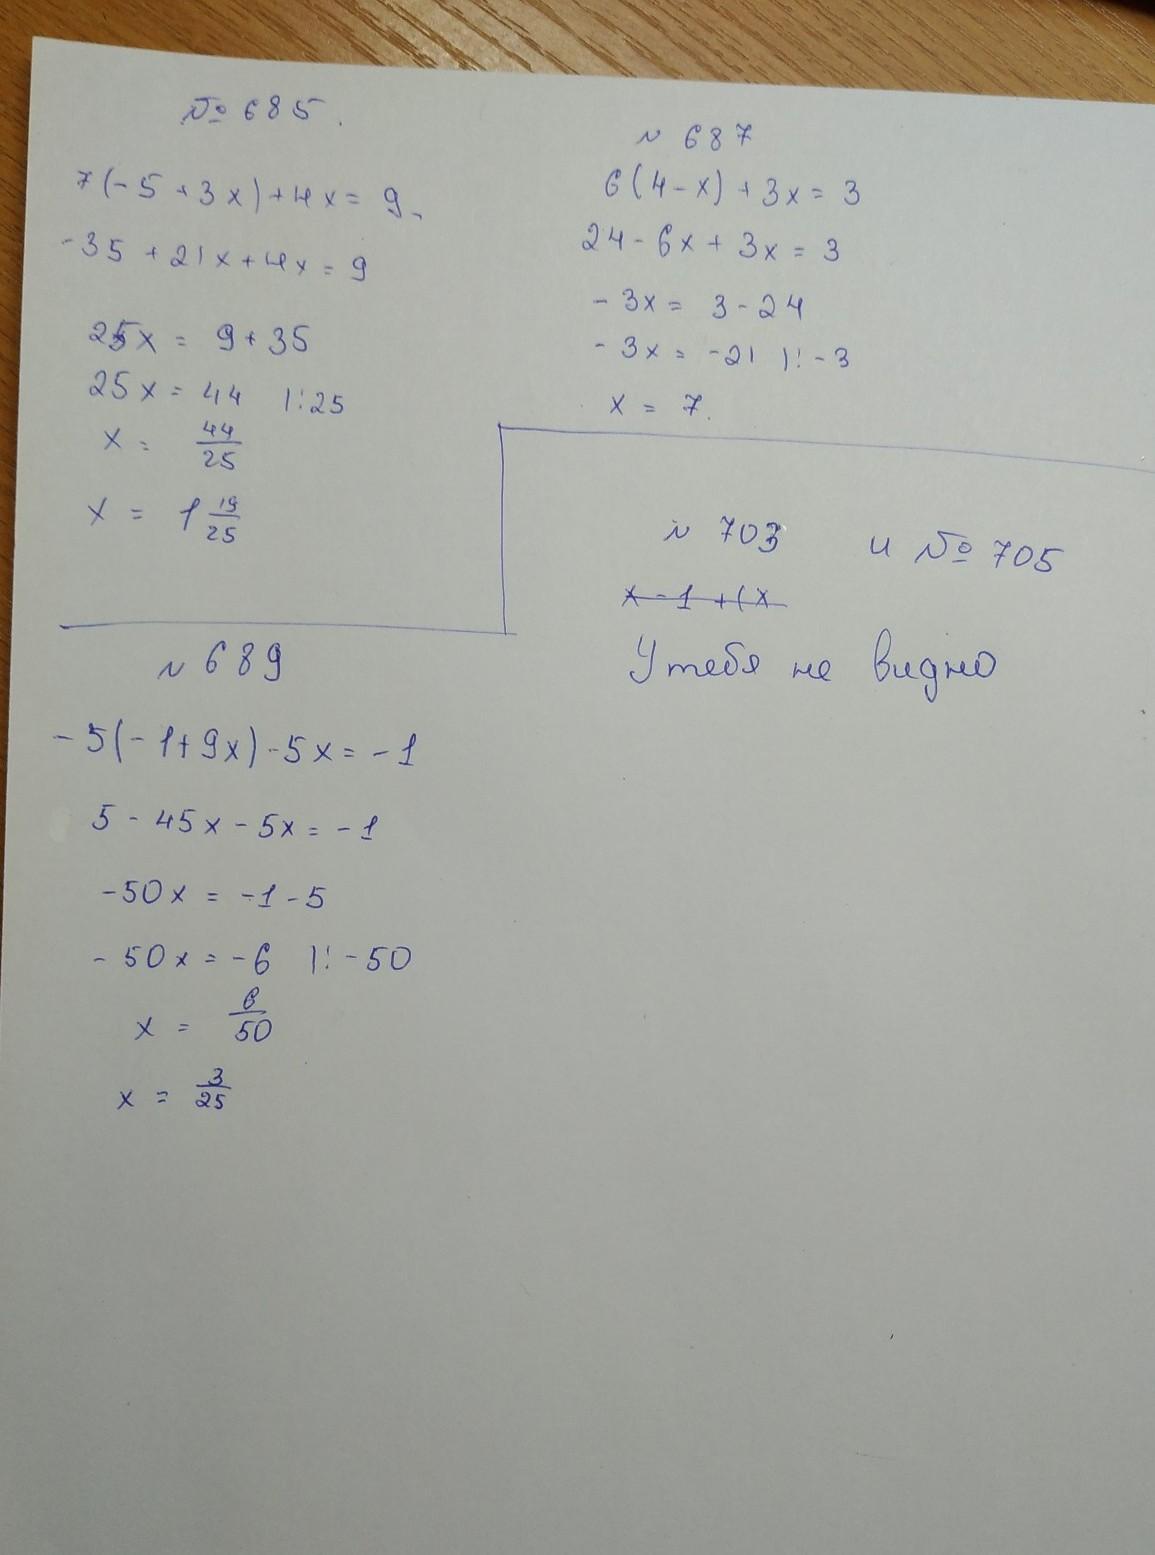 № 685.
7(-5 + 3x) + 4x = 9
-35 + 21x + 4x = 9
25x = 9 + 35
25x = 44 |:25
x = 44/25
x = 1 19/25
N 687
6(4 - x) + 3x = 3
24 - 6x + 3x = 3
- 3x = 3 - 24
- 3x = -21 |: -3
x = 7.
N 689
-5(-1 + 9x) - 5x = -1
5 - 45x - 5x = -1
-50x = -1 - 5
- 50x = -6 |: -50
x = 6/50
x = 3/25
N 703 и № 705
x - 1 + (x
У тебя не видно